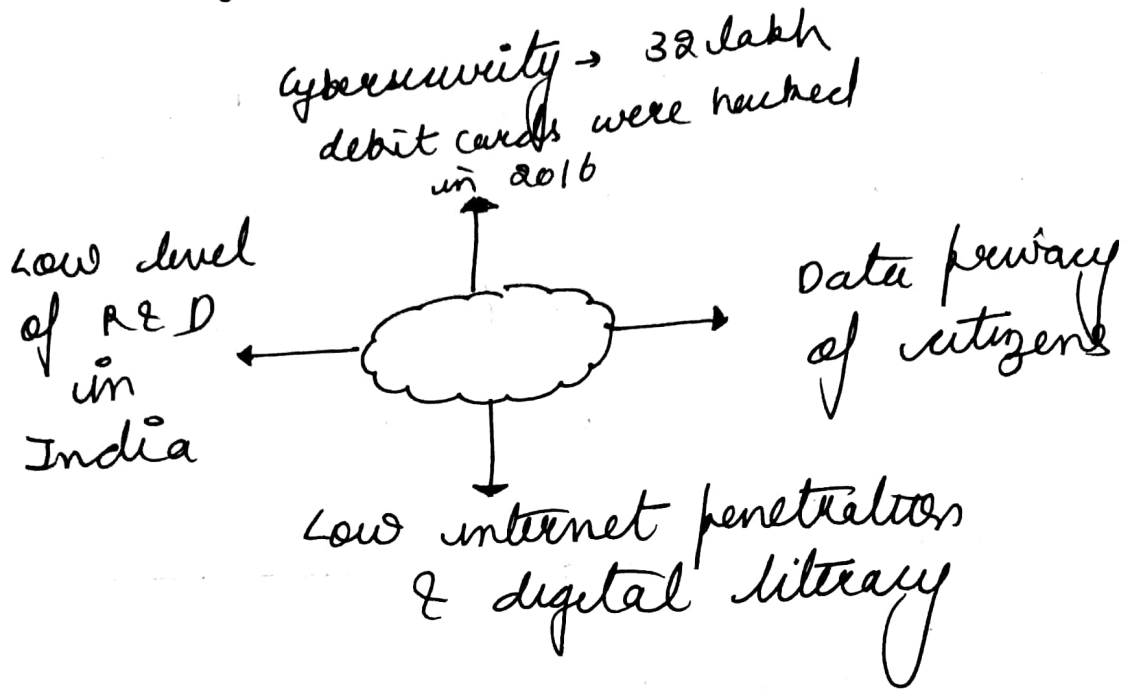 Cybersecurity → 32 lakh
debit cards were hacked
in 2016
Low level
of R & D
in
India
Data privacy
of citizens
Low internet penetration
& digital literacy